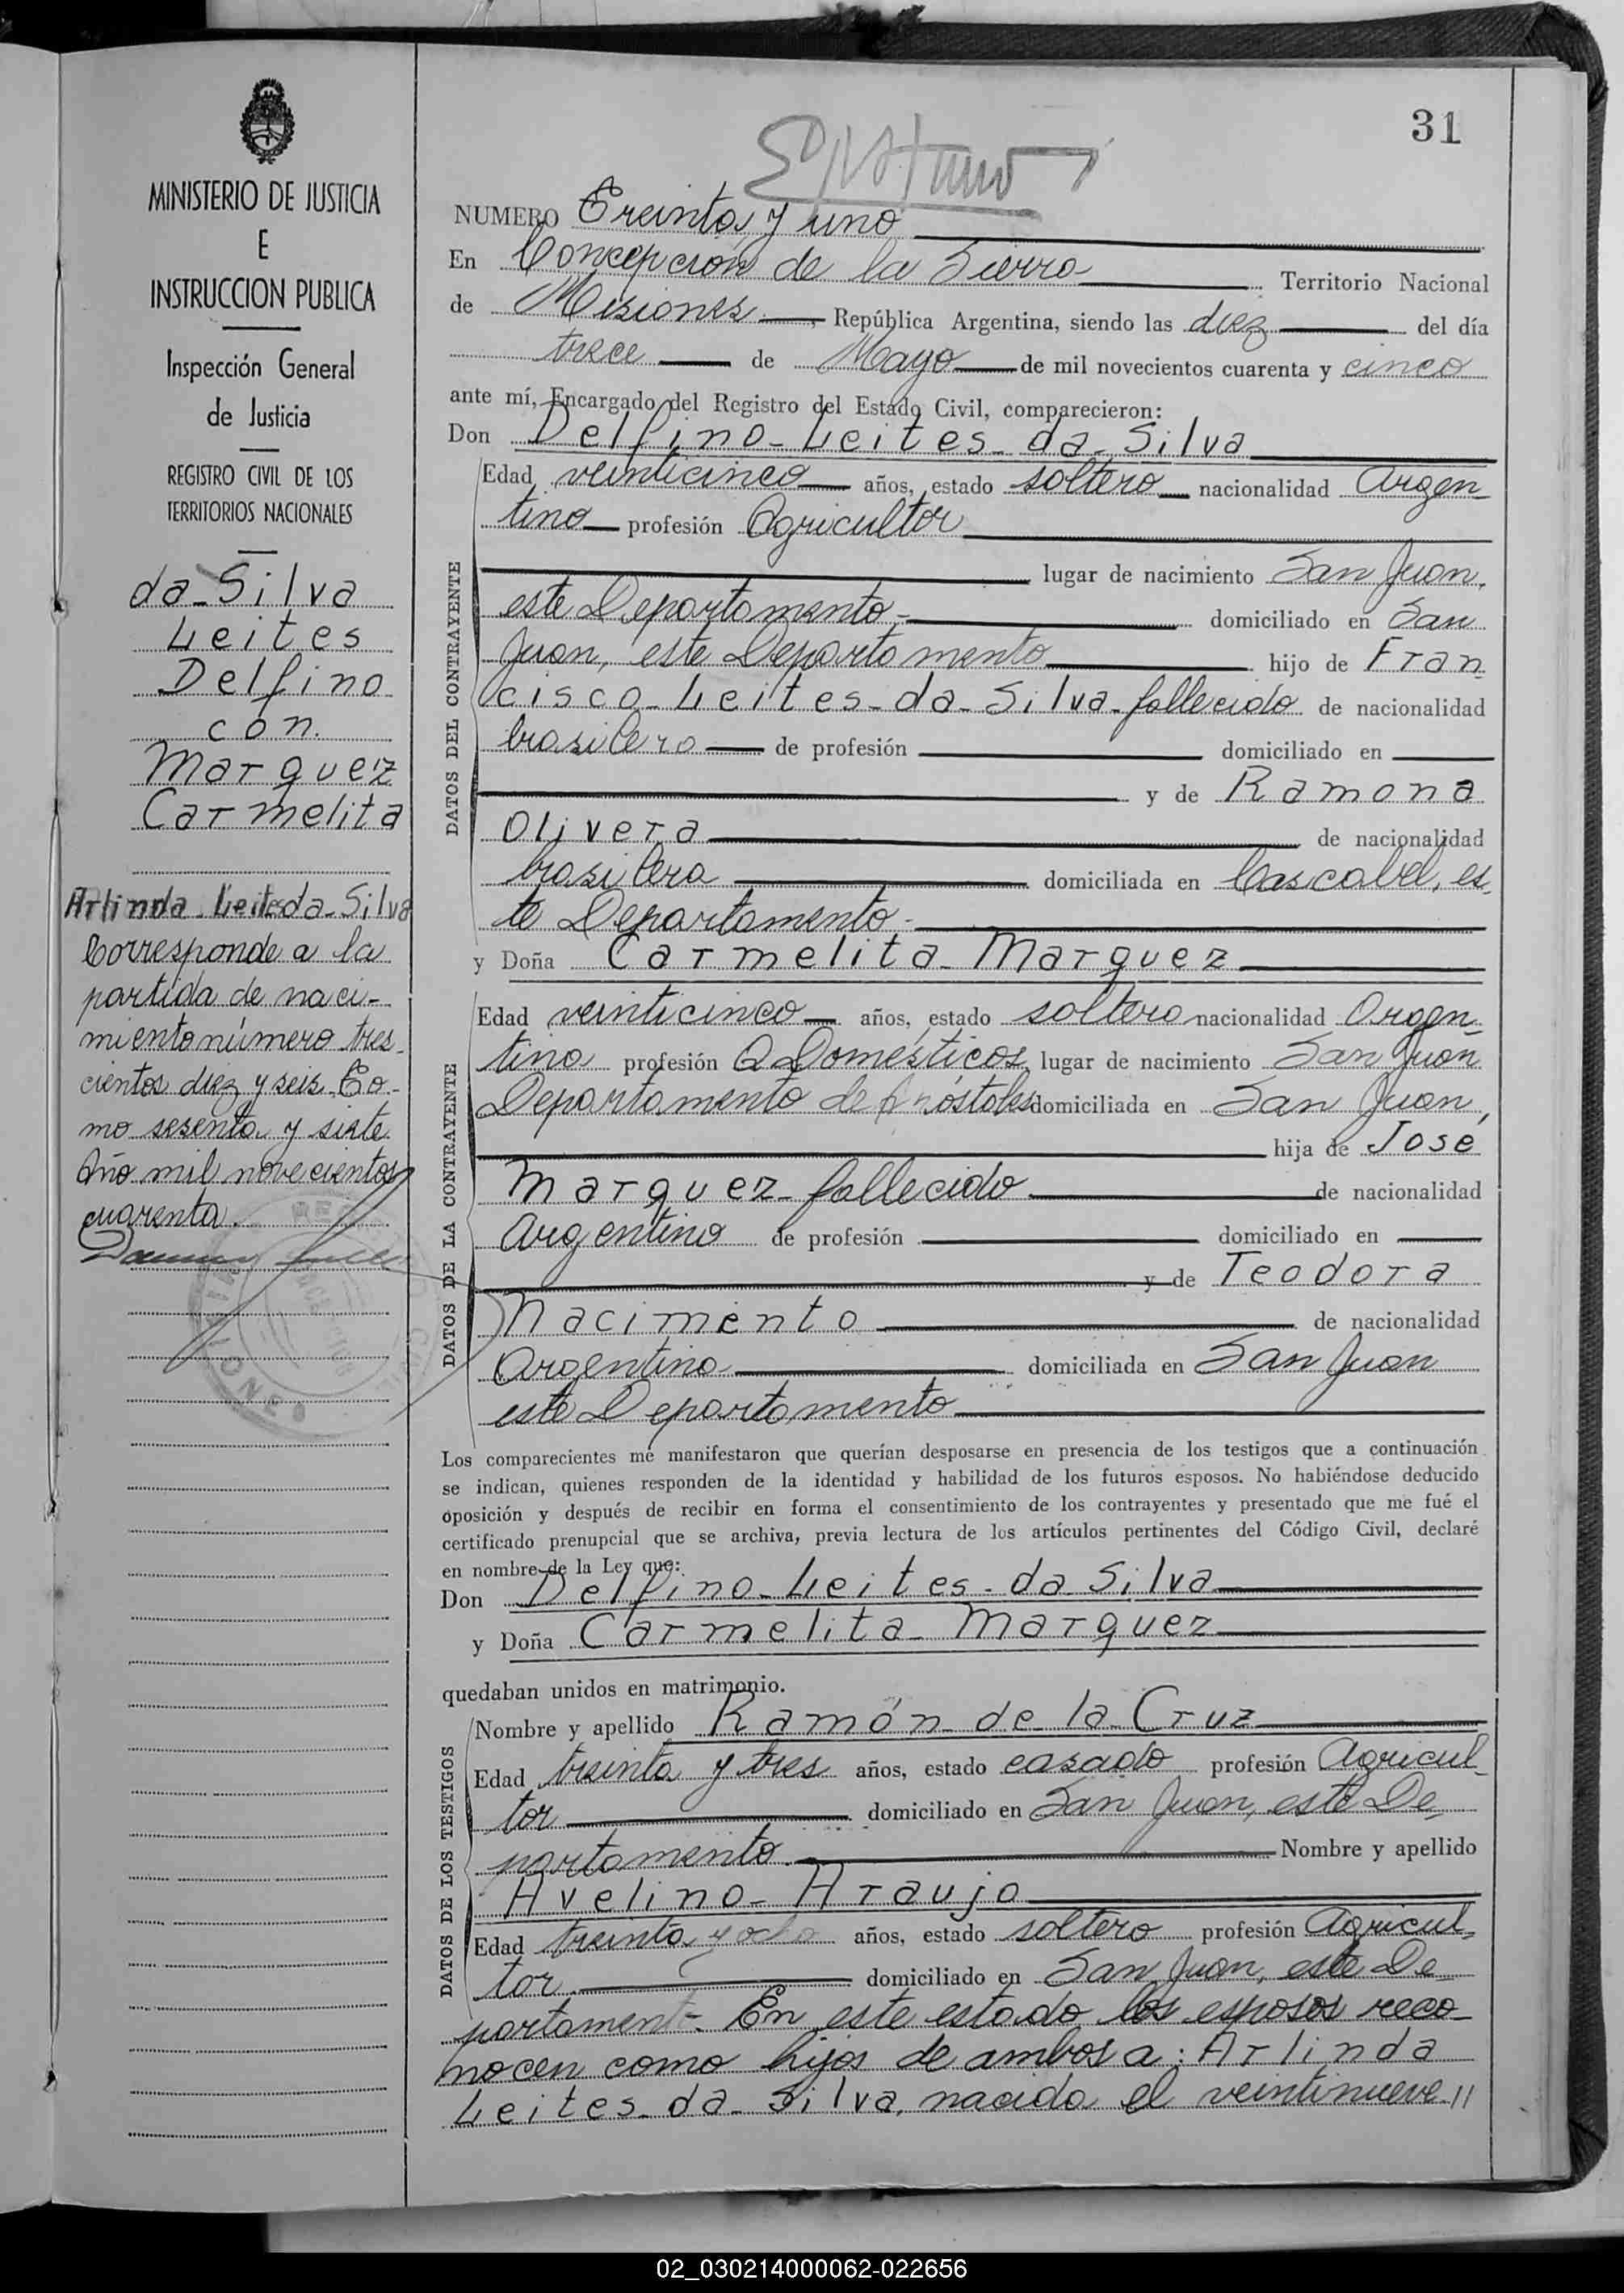 31
MINISTERIO DE JUSTICIA
E
INSTRUCCION PUBLICA
Inspección General
de Justicia
REGISTRO CIVIL DE LOS
TERRITORIOS NACIONALES
da-Silva
Leites
Delfino
con
Marquez
Carmelita
Arlinda Leites da-Silva
Corresponde a la
partida de naci-
miento número tres-
cientos diez y seis. To-
mo sesenta y siete.
Año mil novecientos
cuarenta.
NUMERO Treinta y uno
En Concepción de la Sierra Territorio Nacional
de Misiones, República Argentina, siendo las diez del día
trece de Mayo de mil novecientos cuarenta y cinco
ante mí, Encargado del Registro del Estado Civil, comparecieron:
Don Delfino-Leites-da-Silva
DATOS DEL CONTRAYENTE
Edad veinticinco años, estado soltero nacionalidad Argen-
tino profesión Agricultor
lugar de nacimiento San Juan,
este Departamento domiciliado en San
Juan, este Departamento hijo de Fran
cisco-Leites-da-Silva-fallecido de nacionalidad
brasilero de profesión domiciliado en
y de Ramona
Olivera de nacionalidad
brasilera domiciliada en Cascabel, es-
te Departamento-
y Doña Carmelita-Marquez
DATOS DE LA CONTRAYENTE
Edad veinticinco años, estado soltera nacionalidad Argen-
tina profesión Q Domésticos, lugar de nacimiento San Juan
Departamento de Apóstoles domiciliada en San Juan,
hija de José
Marquez-fallecido de nacionalidad
Argentino de profesión domiciliado en
y de Teodora
Nacimiento de nacionalidad
Argentina domiciliada en San Juan
este Departamento
Los comparecientes me manifestaron que querían desposarse en presencia de los testigos que a continuación
se indican, quienes responden de la identidad y habilidad de los futuros esposos. No habiéndose deducido
oposición y después de recibir en forma el consentimiento de los contrayentes y presentado que me fué el
certificado prenupcial que se archiva, previa lectura de los artículos pertinentes del Código Civil, declaré
en nombre de la Ley que:
Don Delfino-Leites-da-Silva
y Doña Carmelita-Marquez
quedaban unidos en matrimonio.
DATOS DE LOS TESTIGOS
Nombre y apellido Ramón-de-la-Cruz
Edad treinta y tres años, estado casado profesión Agricul-
tor domiciliado en San Juan, este De-
partamento. Nombre y apellido
Avelino-Araujo
Edad treinta y ocho años, estado soltero profesión Agricul-
tor. domiciliado en San Juan, este De-
partamento- En este estado los esposos reco-
nocen como hijos de ambos a: Arlinda
Leites-da-Silva, nacida el veintinueve //
02_030214000062-022656